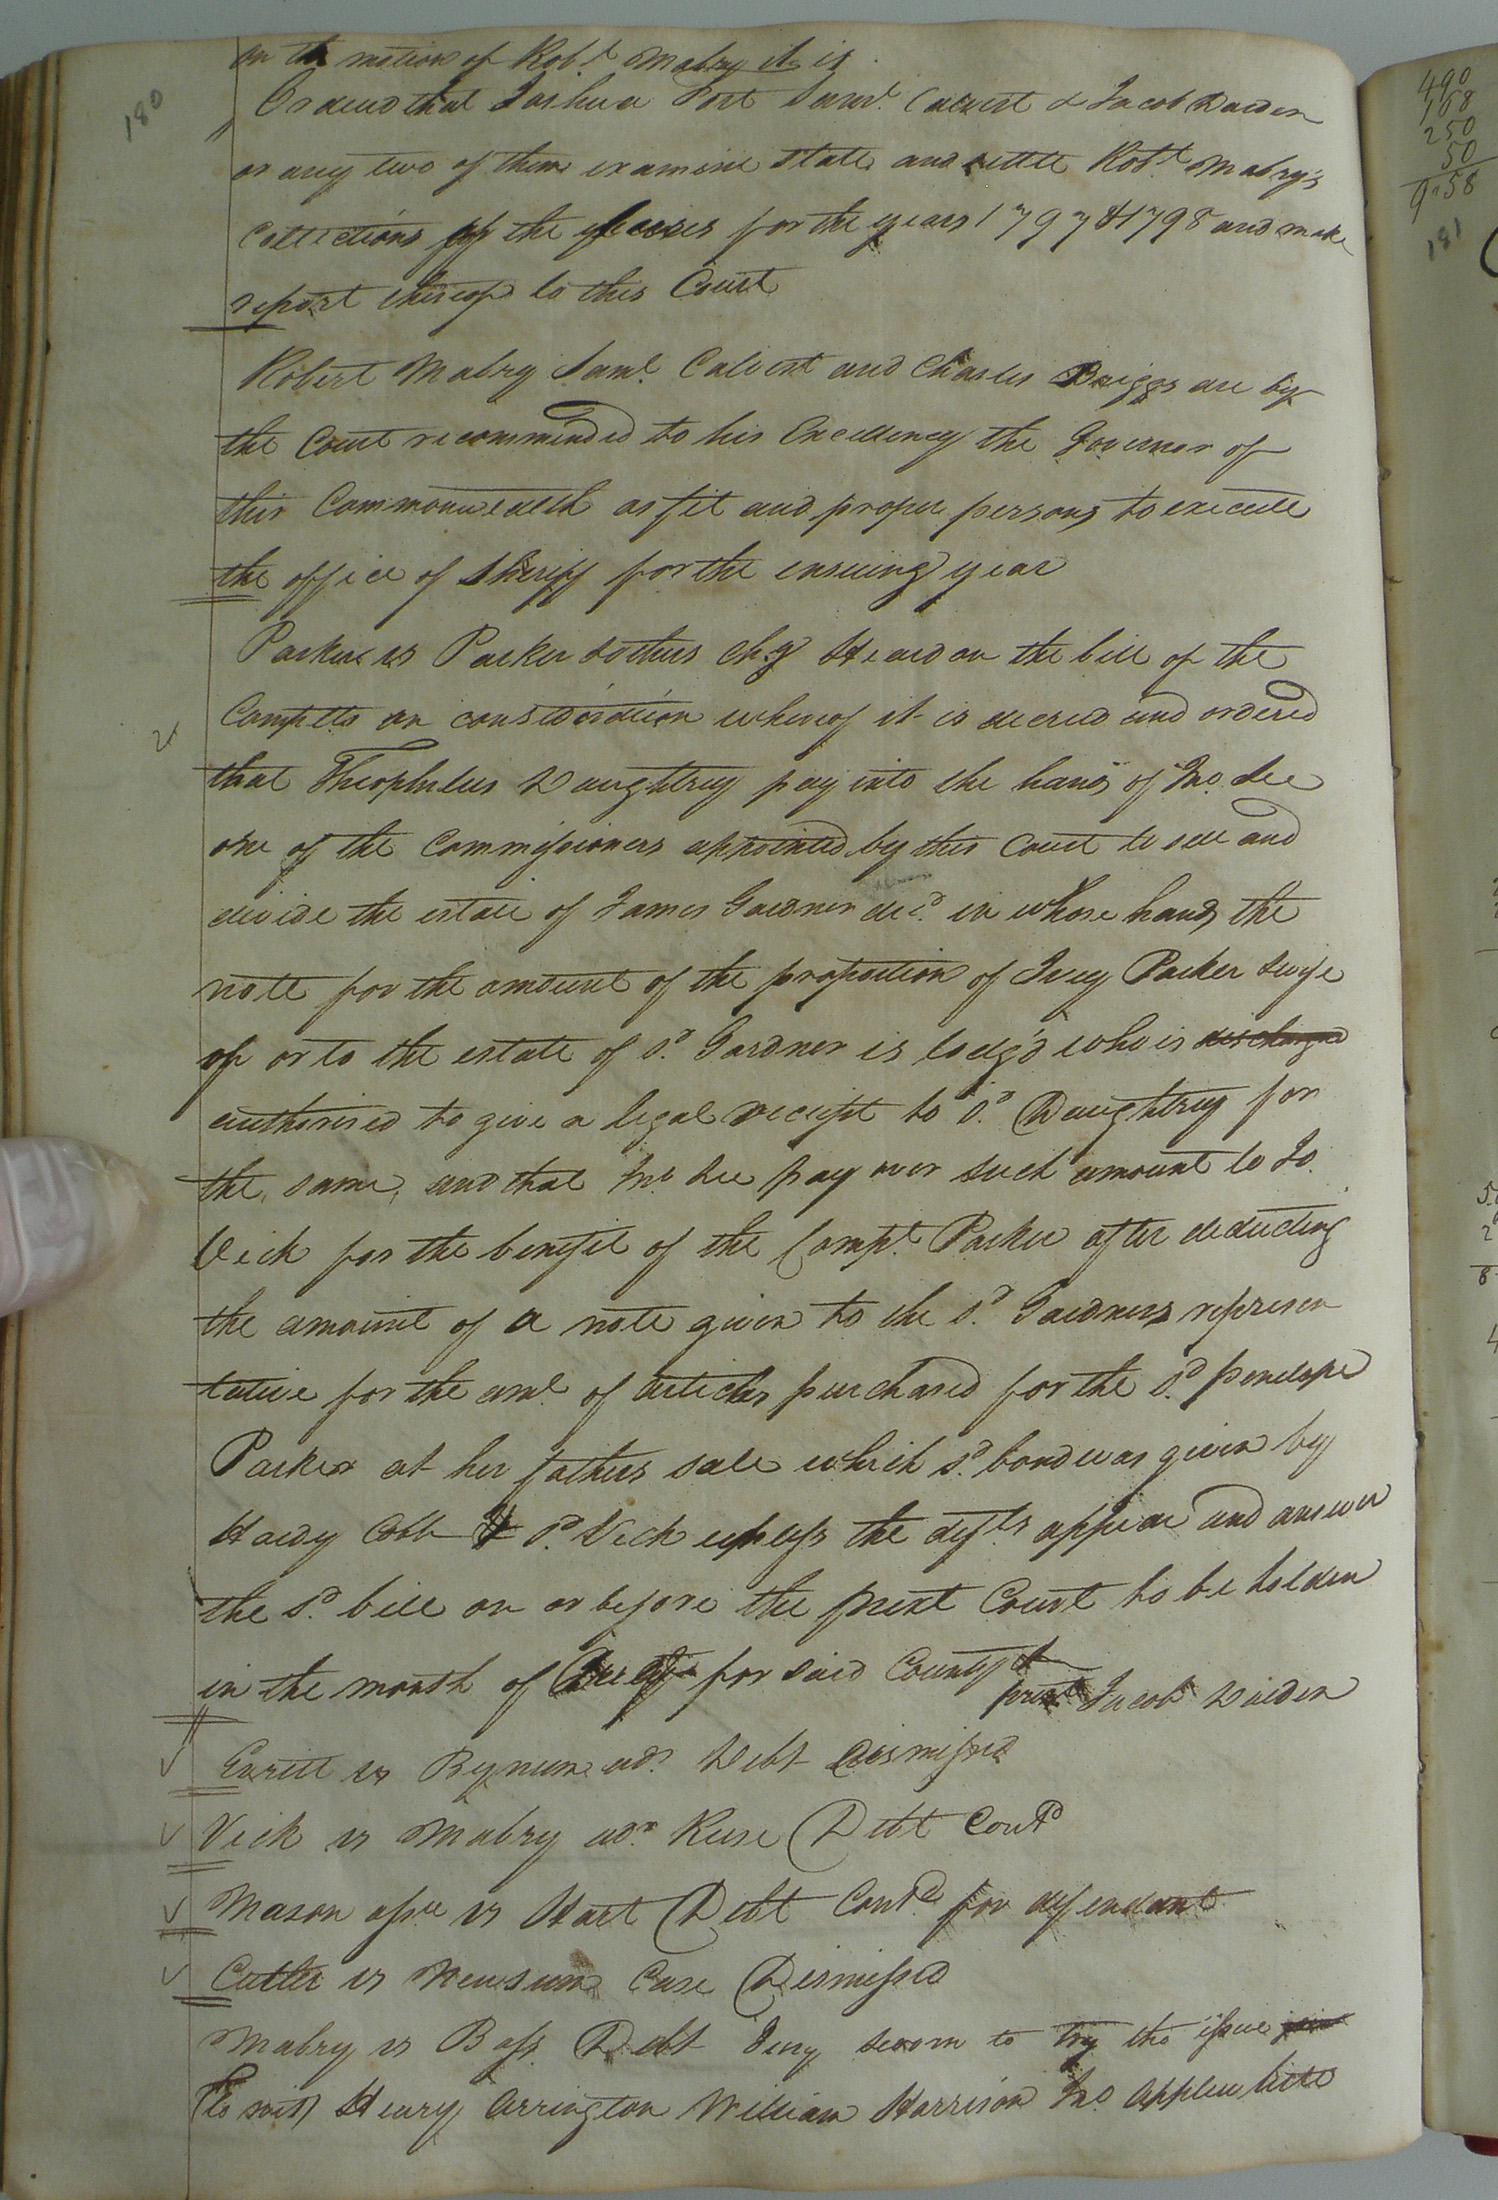 180
on the motion of Robt. Mabry it is
Ordered that Joshua Fort Saml. Calvert & Jacob Darden
or any two of them examine state and settle Robt. Mabry's
Collections of the for the years 1797 & 1798 and make
report thereof to this Court
Robert Mabry Saml. Calvert and Charles Briggs are by
the Court recommended to his Excellency the Governor of
this Commonwealth as fit and proper persons to execute
the office of Sheriff for the ensuing year
Parker vs Parker & others Chy Heard on the bill of the
Complts on consideration whereof it is decreed and ordered
that Theophilus Daughtrey pay into the hands of Jno. Lee
one of the Commissioners appointed by this Court to sell and
divide the estate of James Gardner decd. in whose hands the
note for the amount of the proportion of Ivey Parker & wife
of or to the estate of sd. Gardner is lodg'd who is discharged
authorised to give a legal receipt to sd. Daughtrey for
the same, and that Jno. Lee pay over such amount to Jo.
Vick for the benefit of the Compt. Parker after deducting
the amount of a note given to the sd. Gardners represen
tative for the amt. of articles purchased for the sd. Penelope
Parker at her fathers sale which sd. bond was given by
Hardy Cobb & sd. Vick unless the defts. appear and answer
the sd. bill on or before the next Court to be holden
in the month of for said County
present Jacob Darden
vs Bynum adr. Debt Dismissed
Vick vs Mabry adr. Debt Contd
Mason assee vs Hart Debt Contd. for defendant
Cutler vs Newsum Case Dismissed
Mabry vs Bass Debt Jury sworn to try the issue
(to wit) Henry Arrington William Harrison Jno. Applewhite
490
168
250
50
958
181